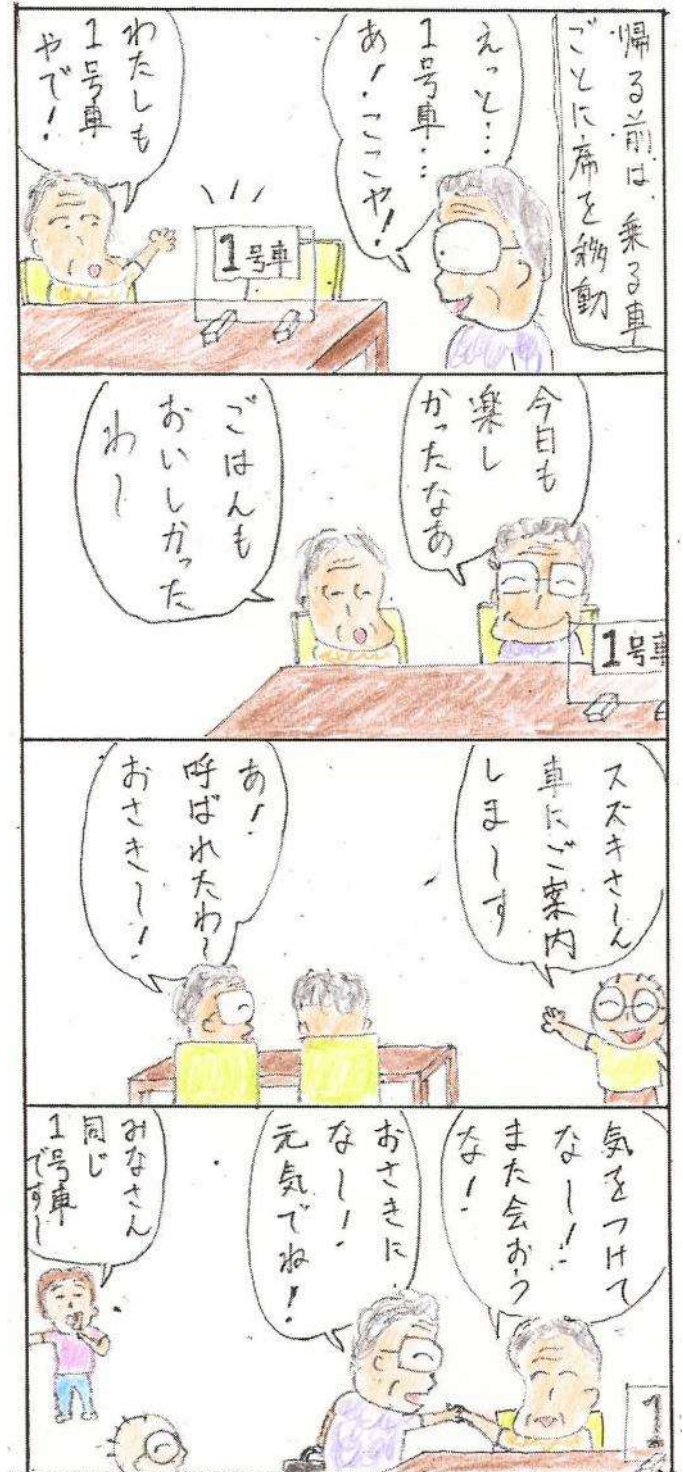 帰る前は、乗る車
ごとに席を移動
えっと…
1号車…
あ!ここや!
わたしも
1号車
やで!
1号車
今日も
楽し
かったなあ
ごはんも
おいしかった
わー
1号車
スズキさーん
車にご案内
しまーす
あ!
呼ばれたわ〜
おさきー!
気をつけて
なー!
また会おう
な!
おさきに
なー!
元気でね!
みなさん
同じ
1号車
ですー
1